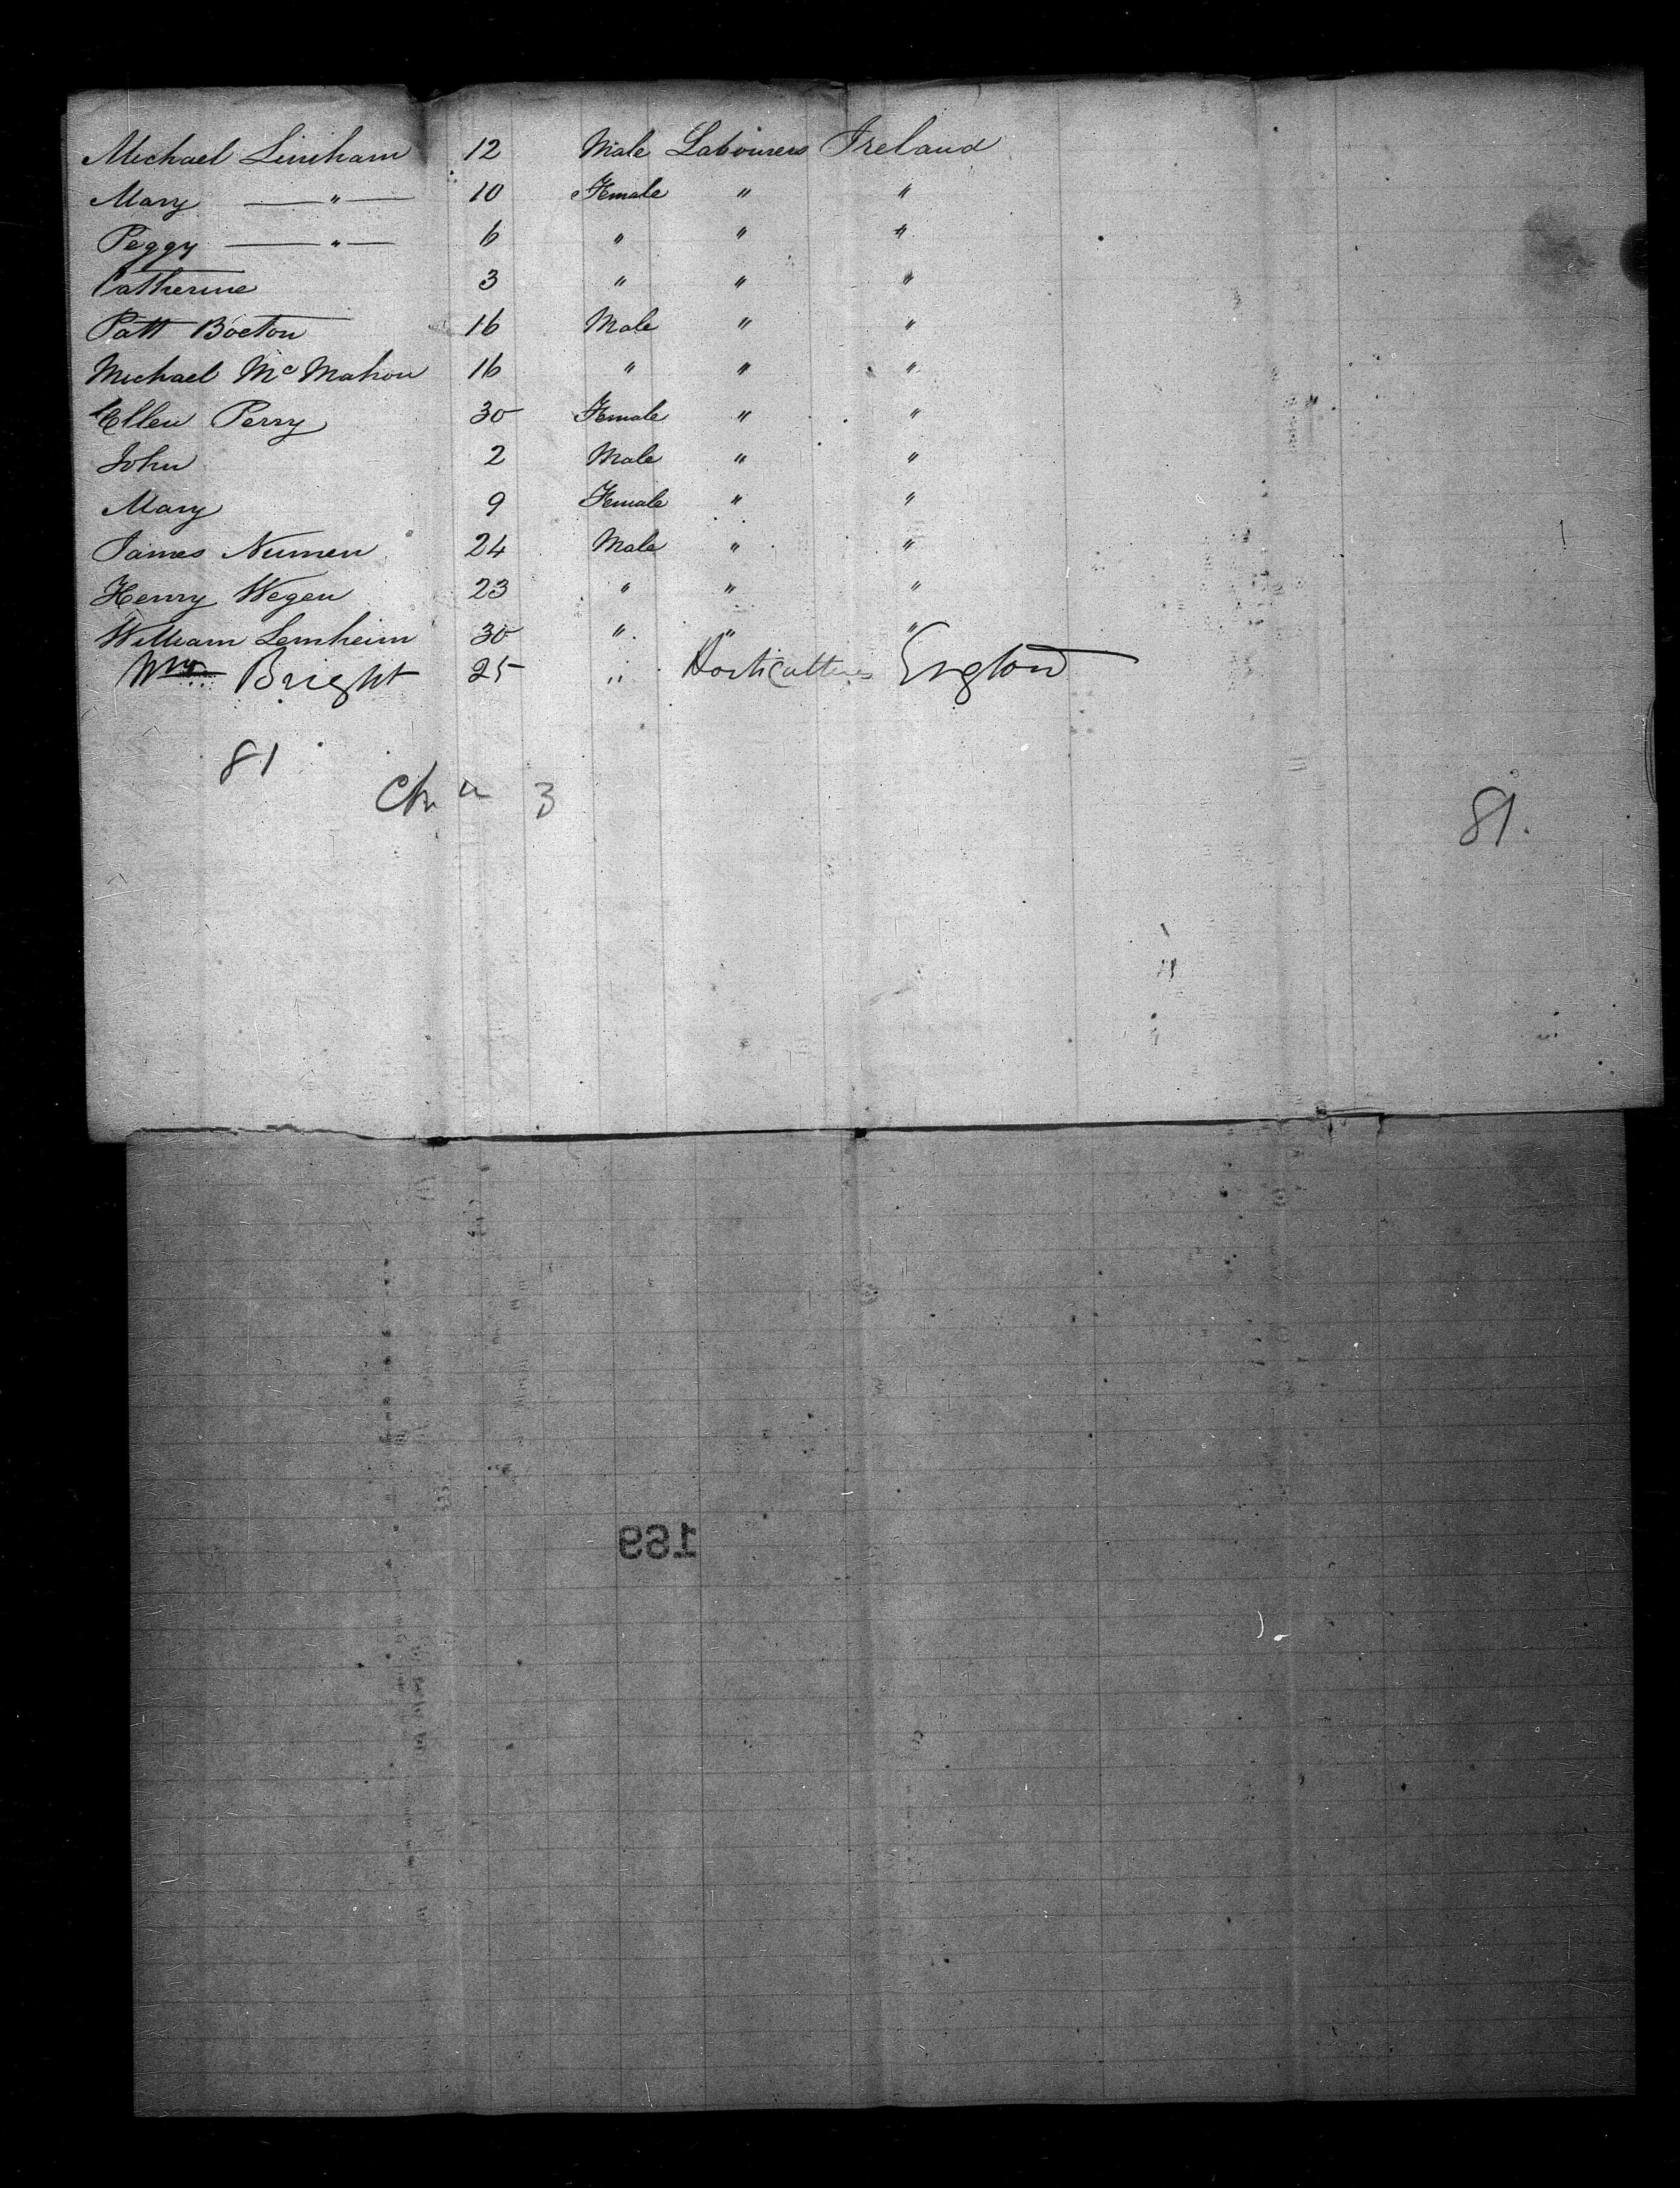 Michael Lineham 12 Male Labourers Ireland
Mary — " — 10 Female " "
Peggy — " — 6 " " "
Catherine 3 " " "
Patt Boeton 16 Male " "
Michael Mc Mahon 16 " " "
Ellen Perry 30 Female " "
John 2 Male " "
Mary 9 Female " "
James Numen 24 Male " "
Henry Wegen 23 " " "
William Lemheim 30 " " "
Wm Bright 25 " Horticulturs England
81
3
81.
169